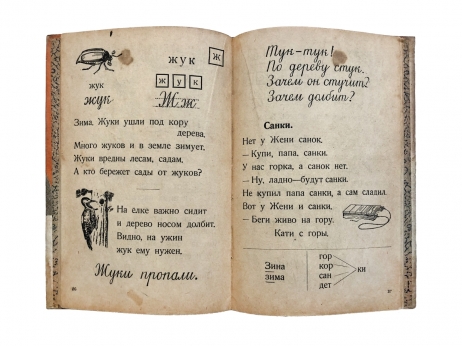 жук ж
жук
жук
жук Жж
Зима. Жуки ушли под кору
дерева.
Много жуков и в земле зимует.
Жуки вредны лесам, садам,
А кто бережет сады от жуков?
На елке важно сидит
и дерево носом долбит.
Видно, на ужин
жук ему нужен.
Жуки пропали.
86
Тук-тук!
По дереву стук.
Зачем он стучит?
Зачем долбит?
Санки.
Нет у Жени санок.
— Купи, папа, санки.
У нас горка, а санок нет.
— Ну, ладно—будут санки.
Не купил папа санки, а сам сладил.
Вот у Жени и санки.
— Беги живо на гору.
Кати с горы,
Зина
зима
гор
кор
сан
дет
ки
87